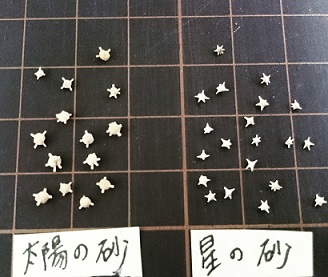 太陽の砂
星の砂